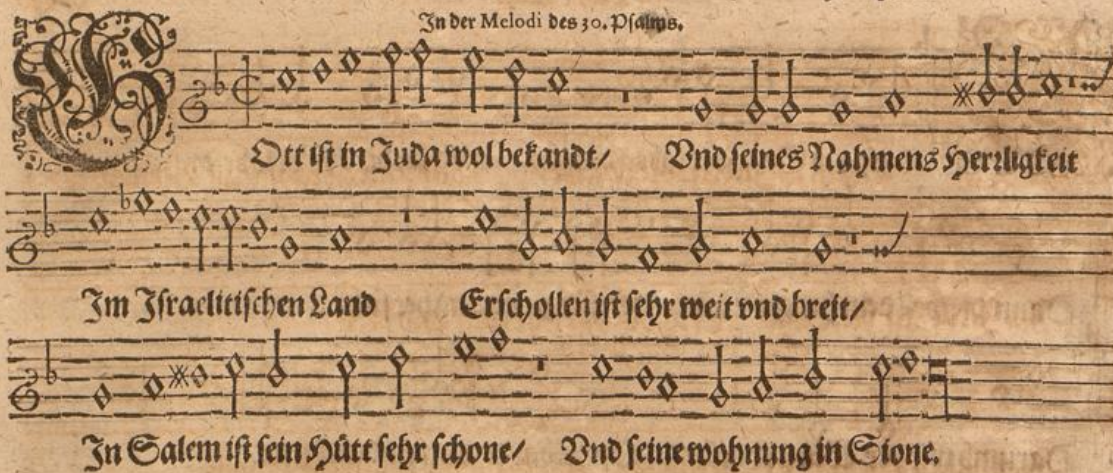 In der Melodi des 30. Psalms.
GOtt ist in Juda wol bekandt/ Vnd seines Nahmens Herrligkeit
Im Israelitischen Land Erschollen ist sehr weit vnd breit/
In Salem ist sein Hütt sehr schone/ Vnd seine wohnung in Sione.